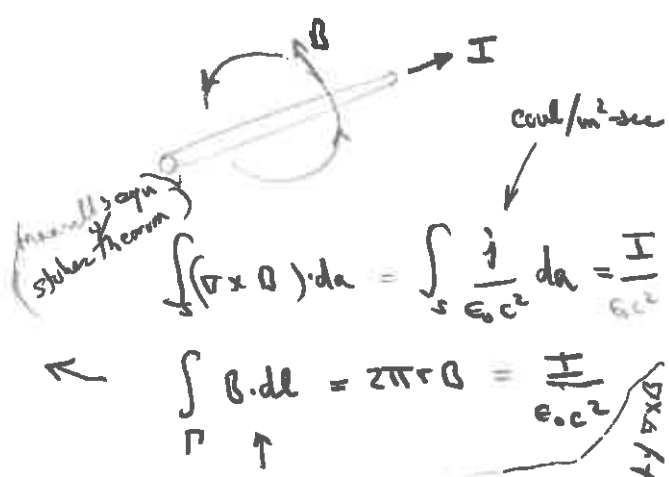 B
I
coul/m²-sec
maxwell's equ
&
stokes theorem
∫_S (∇ × B)·da = ∫_S j/(ε₀c²) da = I/(ε₀c²)
← ∫_Γ B·dl = 2πrB = I/(ε₀c²)
↑